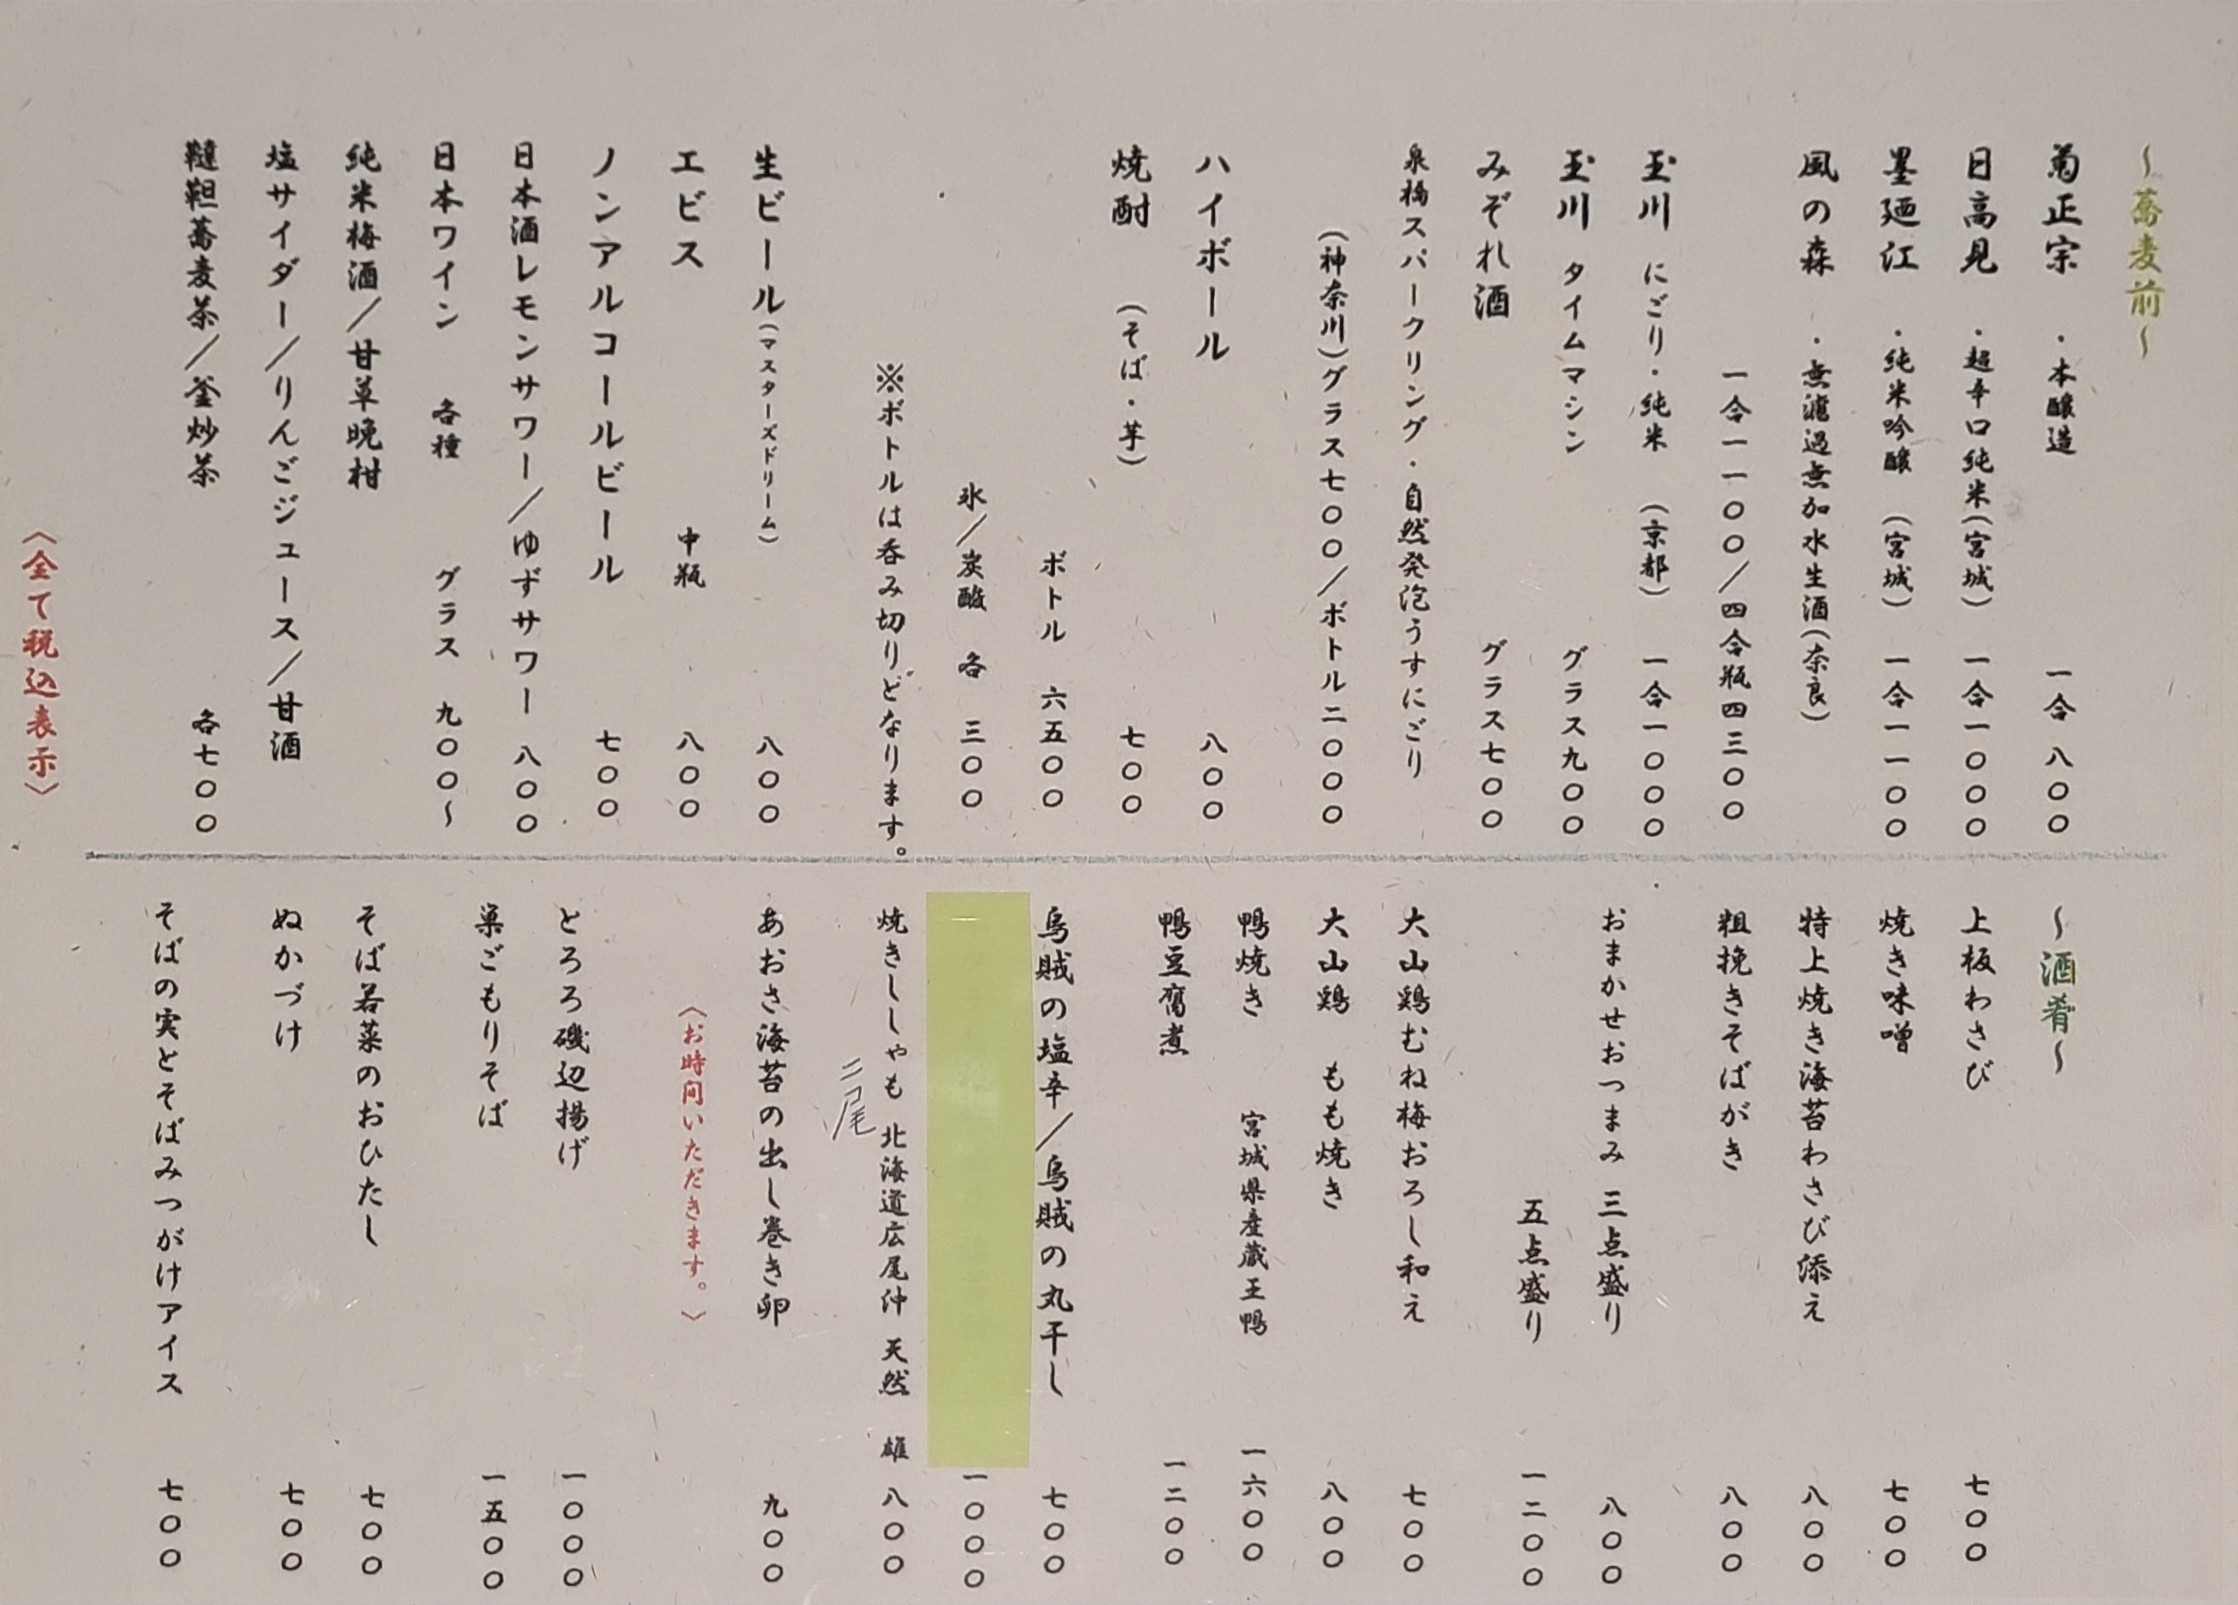 〜蕎麦前〜
菊正宗 ・本醸造 一合 八〇〇
日高見 ・超辛口純米(宮城) 一合一〇〇〇
墨廼江 ・純米吟醸 (宮城) 一合一一〇〇
風の森 ・無濾過無加水生酒(奈良)
一合一一〇〇／四合瓶四三〇〇
玉川 にごり・純米 (京都) 一合一〇〇〇
玉川 タイムマシン グラス九〇〇
みぞれ酒 グラス七〇〇
泉橋スパークリング・自然発泡うすにごり
(神奈川)グラス七〇〇／ボトル二〇〇〇
ハイボール 八〇〇
焼酎 (そば・芋) 七〇〇
ボトル 六五〇〇
氷／炭酸 各 三〇〇
※ボトルは呑み切りどなります。
生ビール(マスターズドリーム) 八〇〇
ヱビス 中瓶 八〇〇
ノンアルコールビール 七〇〇
日本酒レモンサワー／ゆずサワー 八〇〇
日本ワイン 各種 グラス 九〇〇〜
純米梅酒／甘草晩柑
塩サイダー／りんごジュース／甘酒
韃靼蕎麦茶／釜炒茶 各七〇〇
〈全て税込表示〉
〜酒肴〜
上板わさび 七〇〇
焼き味噌 七〇〇
特上焼き海苔わさび添え 八〇〇
粗挽きそばがき 八〇〇
おまかせおつまみ 三点盛り 八〇〇
五点盛り 一二〇〇
大山鶏むね梅おろし和え 七〇〇
大山鶏 もも焼き 八〇〇
鴨焼き 宮城県産蔵王鴨 一六〇〇
鴨豆腐煮 一二〇〇
烏賊の塩辛／烏賊の丸干し 七〇〇
一〇〇〇
焼きししゃも 北海道広尾沖 天然 雄 八〇〇
二尾
あおさ海苔の出し巻き卵 九〇〇
〈お時間いただきます。〉
とろろ磯辺揚げ 一〇〇〇
巣ごもりそば 一五〇〇
そば若菜のおひたし 七〇〇
ぬかづけ 七〇〇
そばの実とそばみつがけアイス 七〇〇